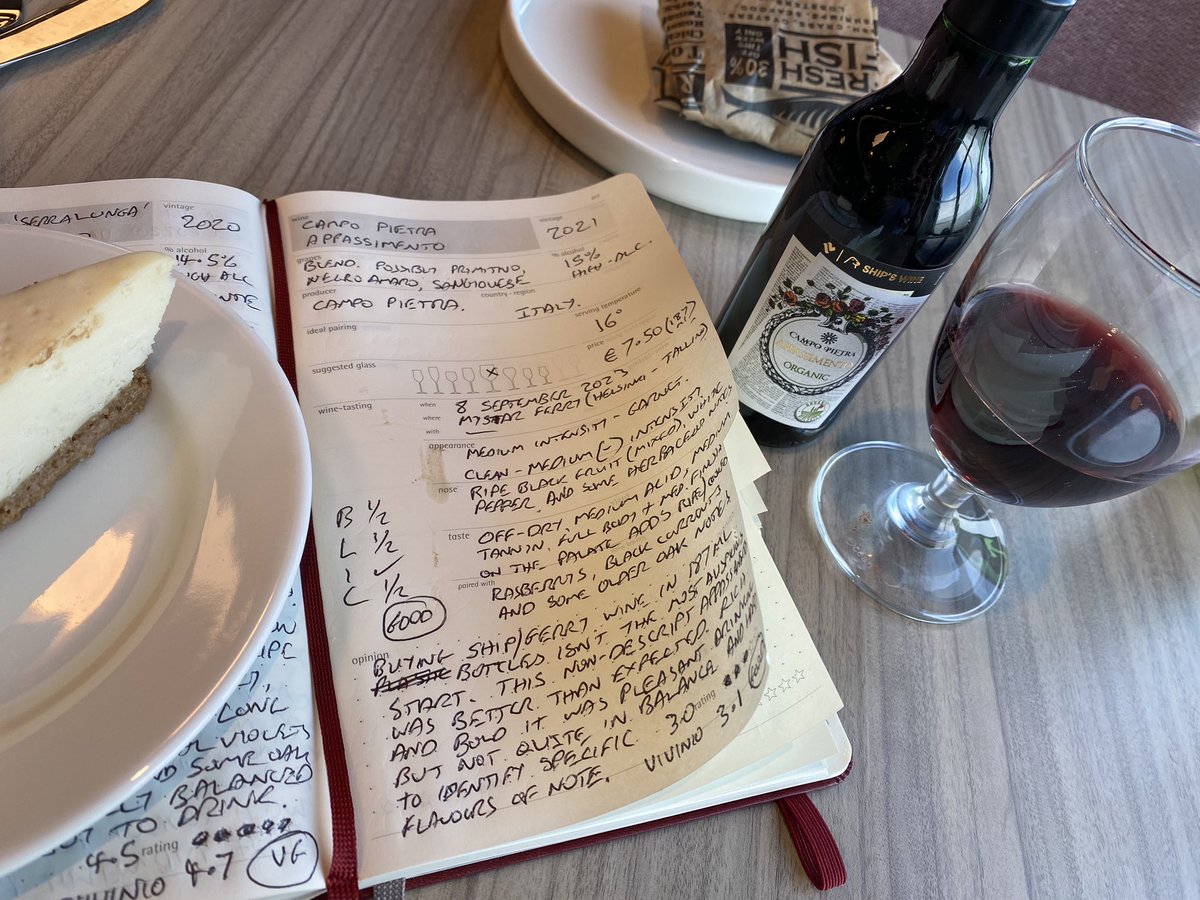 'SERRALUNGA'
vintage
2020
% alcohol
14.5%
HIGH ALC
PE
LONG
VIOLETS
SOME OAK
BALANCED
TO DRINK.
4.5 rating
VIVINIO 4.7 VG
wine
vintage
CAMPO PIETRA
APPASSIMENTO
2021
grapes
% alcohol
BLEND. POSSIBLY PRIMITIVO,
NEGROAMARO, SANGIOVESE
15%
HIGH-ALC.
producer
country - region
CAMPO PIETRA.
ITALY.
ideal pairing
serving temperature
16°
price
€7.50 (187 ML)
suggested glass
X
wine-tasting
when 8 SEPTEMBER 2023
where MYSTAR FERRY (HELSINKI - TALLIN)
with
appearance MEDIUM INTENSITY - GARNET.
nose CLEAN - MEDIUM (-) INTENSITY.
RIPE BLACK FRUIT (MIXED), WHITE
PEPPER, AND SOME HERBACEOUS NOTES
taste OFF-DRY, MEDIUM ACID, MEDIUM
TANNIN, FULL BODY + MED. FINISH
ON THE PALATE ADDS RIPE/COOKED
paired with RASBERRYS, BLACK CURRENTS
AND SOME OLDER OAK NOTES
B 1/2
L 1/2
I ✓
C 1/2
GOOD
opinion
BUYING SHIP/FERRY WINE IN 187ML
BOTTLES ISN'T THE MOST AUSPICIOUS
START. THIS NON-DESCRIPT APPASSIMENTO
WAS BETTER THAN EXPECTED. RICH
AND BOLD IT WAS PLEASANT DRINKING
BUT NOT QUITE IN BALANCE AND HARD
TO IDENTIFY SPECIFIC 3.0 rating
FLAVOURS OF NOTE. VIVINIO 3.1 GOOD
FRESH
FISH
30%
SHIP'S WINE
CAMPO PIETRA
APPASSIMENTO
ORGANIC